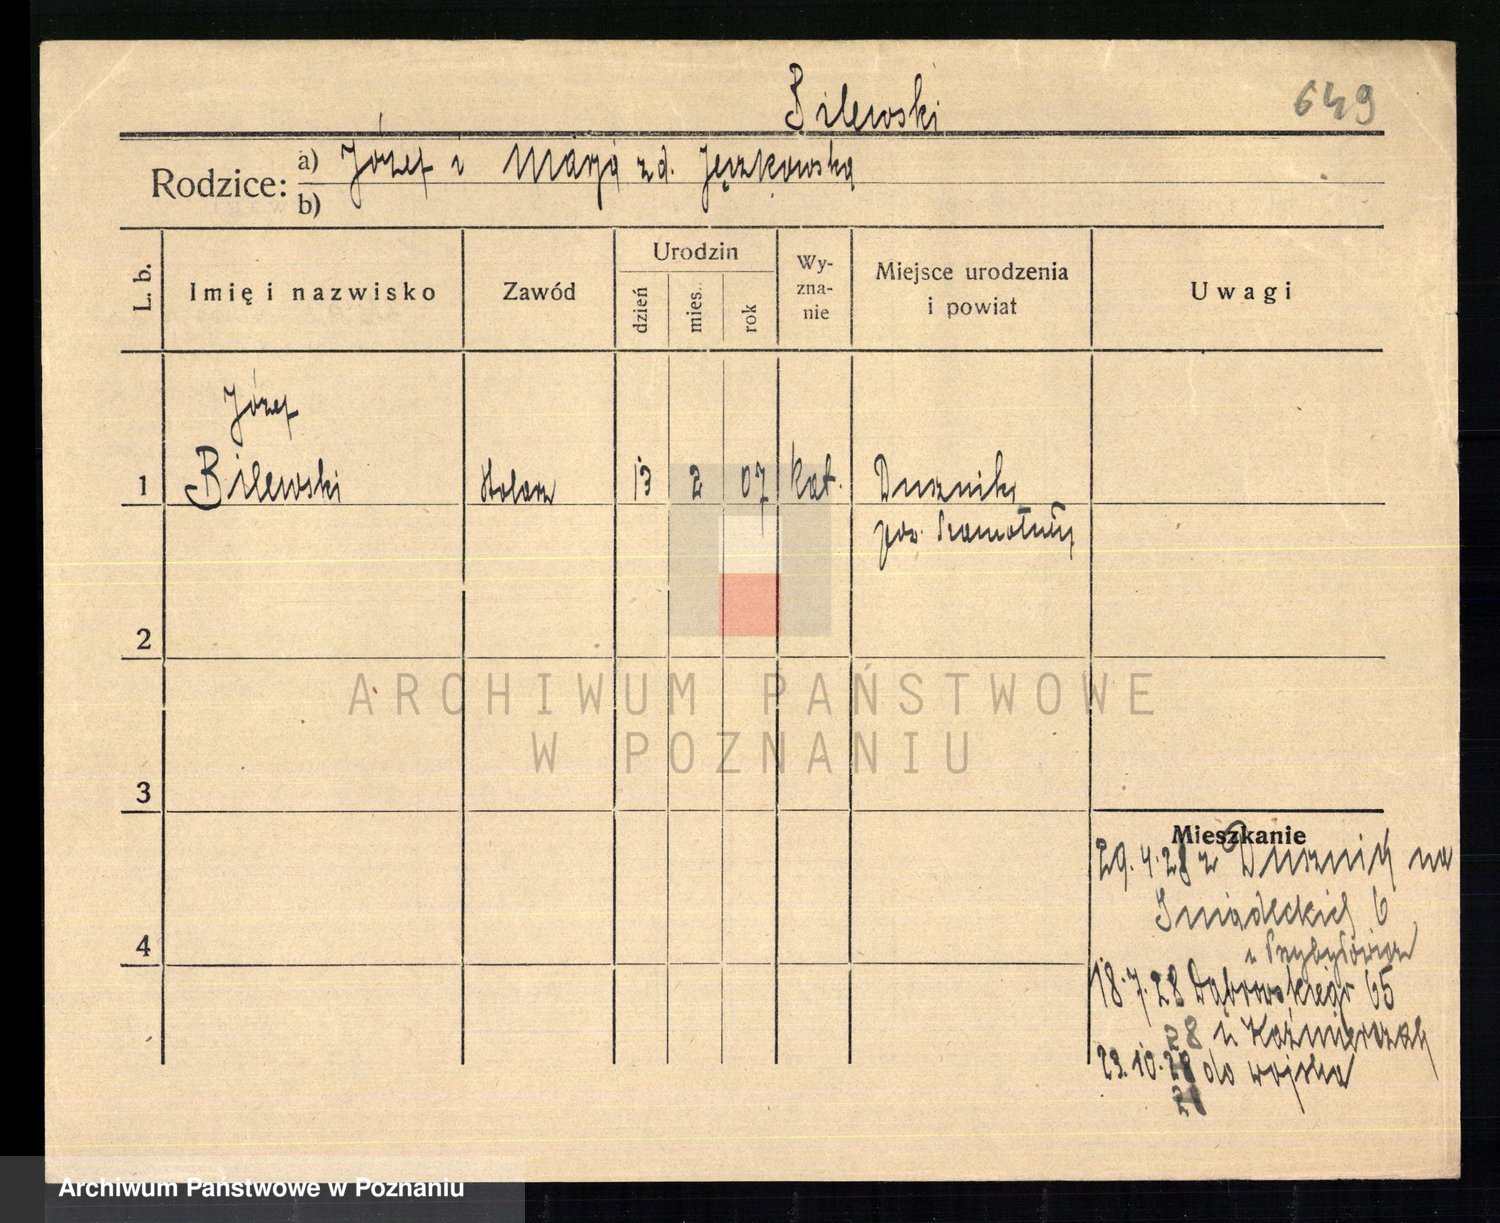 Bilewski
649
Rodzice: a) Józef i Marja zd. Jęczkowska
b)
L. b.
Imię i nazwisko
Zawód
Urodzin
dzień
mies.
rok
Wy-
zna-
nie
Miejsce urodzenia
i powiat
Uwagi
Józef
1 Bilewski stolarz 13 2 07 kat. Duszniki
pow. Szamotuły
2
3
4
ARCHIWUM PAŃSTWOWE
W POZNANIU
Mieszkanie
29.4.28 z Dusznik na
Śniadeckich 6
u Przybyłowicz
18.7.28 Dąbrowskiego 65
u Kaźmierczak
28
23.10.28 do wojska
Archiwum Państwowe w Poznaniu